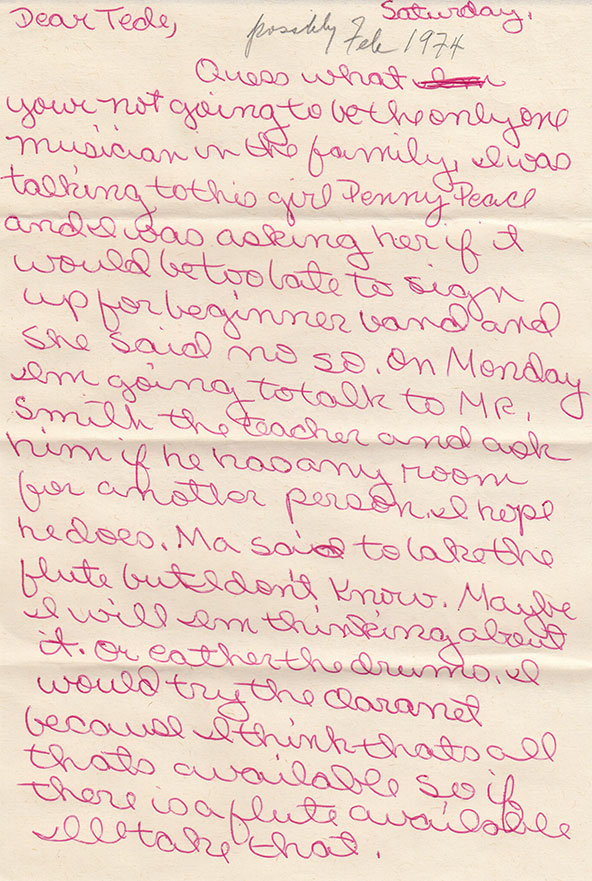 Dear Tede, Saturday.
possibly Feb 1974
Guess what
your not going to be the only one
musician in the family. I was
talking to this girl Penny Peace
and I was asking her if it
would be too late to sign
up for beginner band and
she said no so. On Monday
Im going to talk to MR.
Smith the teacher and ask
him if he has any room
for another person. I hope
he does. Ma said to take the
flute but I don't know. Maybe
I will Im thinking about
it. Or eather the drums. I
would try the claranet
because I think thats all
thats available so if
there is a flute available
Ill take that.